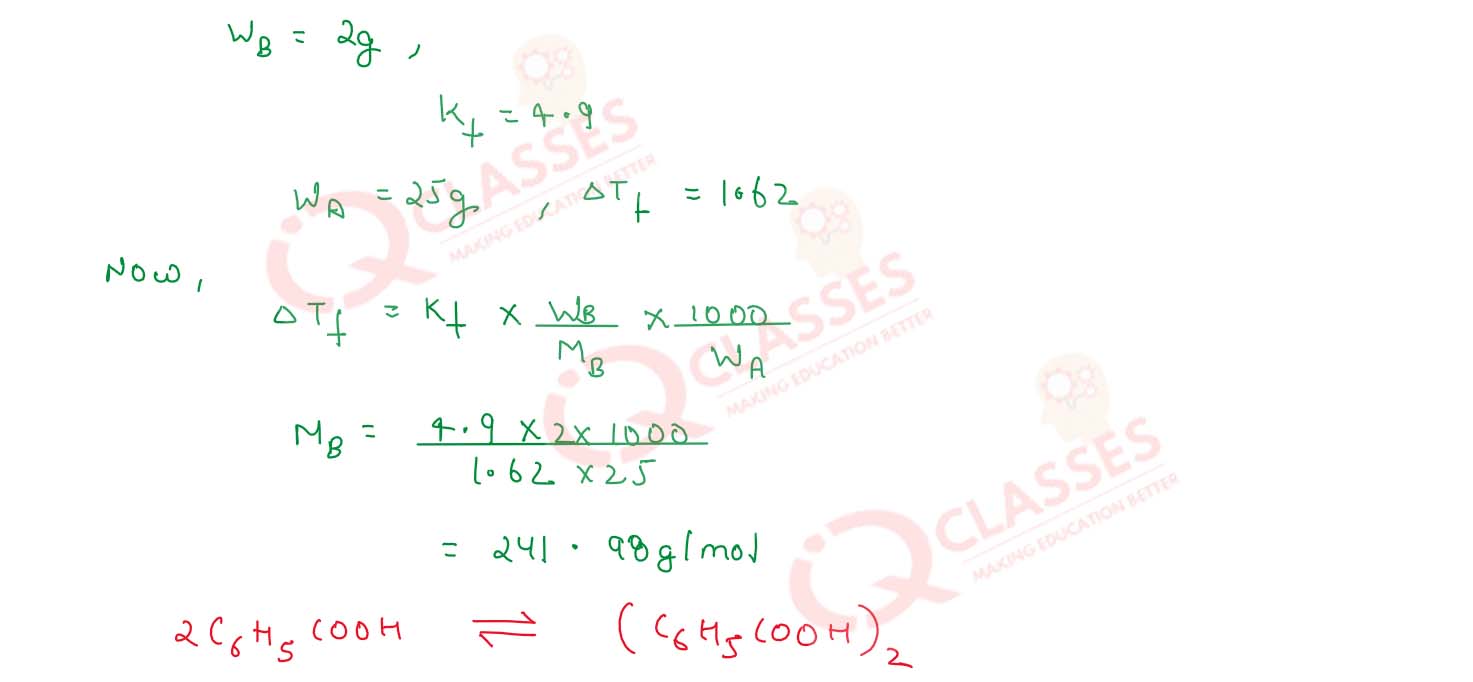 W_B = 2g,
K_f = 4.9
W_A = 25g, ΔT_f = 1.62
Now,
ΔT_f = K_f × W_B / M_B × 1000 / W_A
M_B = 4.9 × 2 × 1000 / 1.62 × 25
= 241.98 g/mol
2C₆H₅COOH ⇌ (C₆H₅COOH)₂
iQ CLASSES
MAKING EDUCATION BETTER
iQ CLASSES
MAKING EDUCATION BETTER
iQ CLASSES
MAKING EDUCATION BETTER